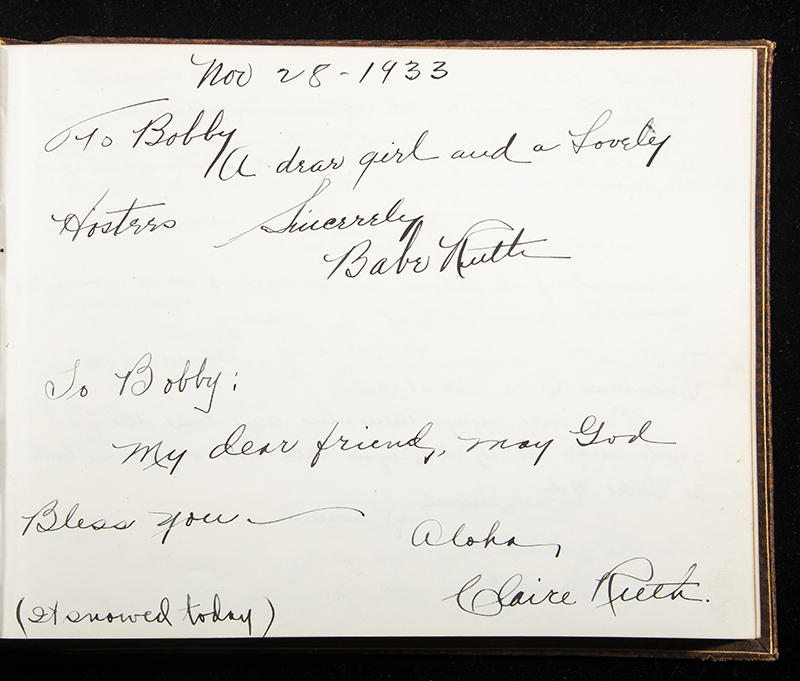 Nov 28 - 1933
To Bobby
A dear girl and a Lovely
Hostess Sincerely
Babe Ruth
To Bobby:
My dear friend, may God
Bless you
Aloha,
Claire Ruth.
(It snowed today)